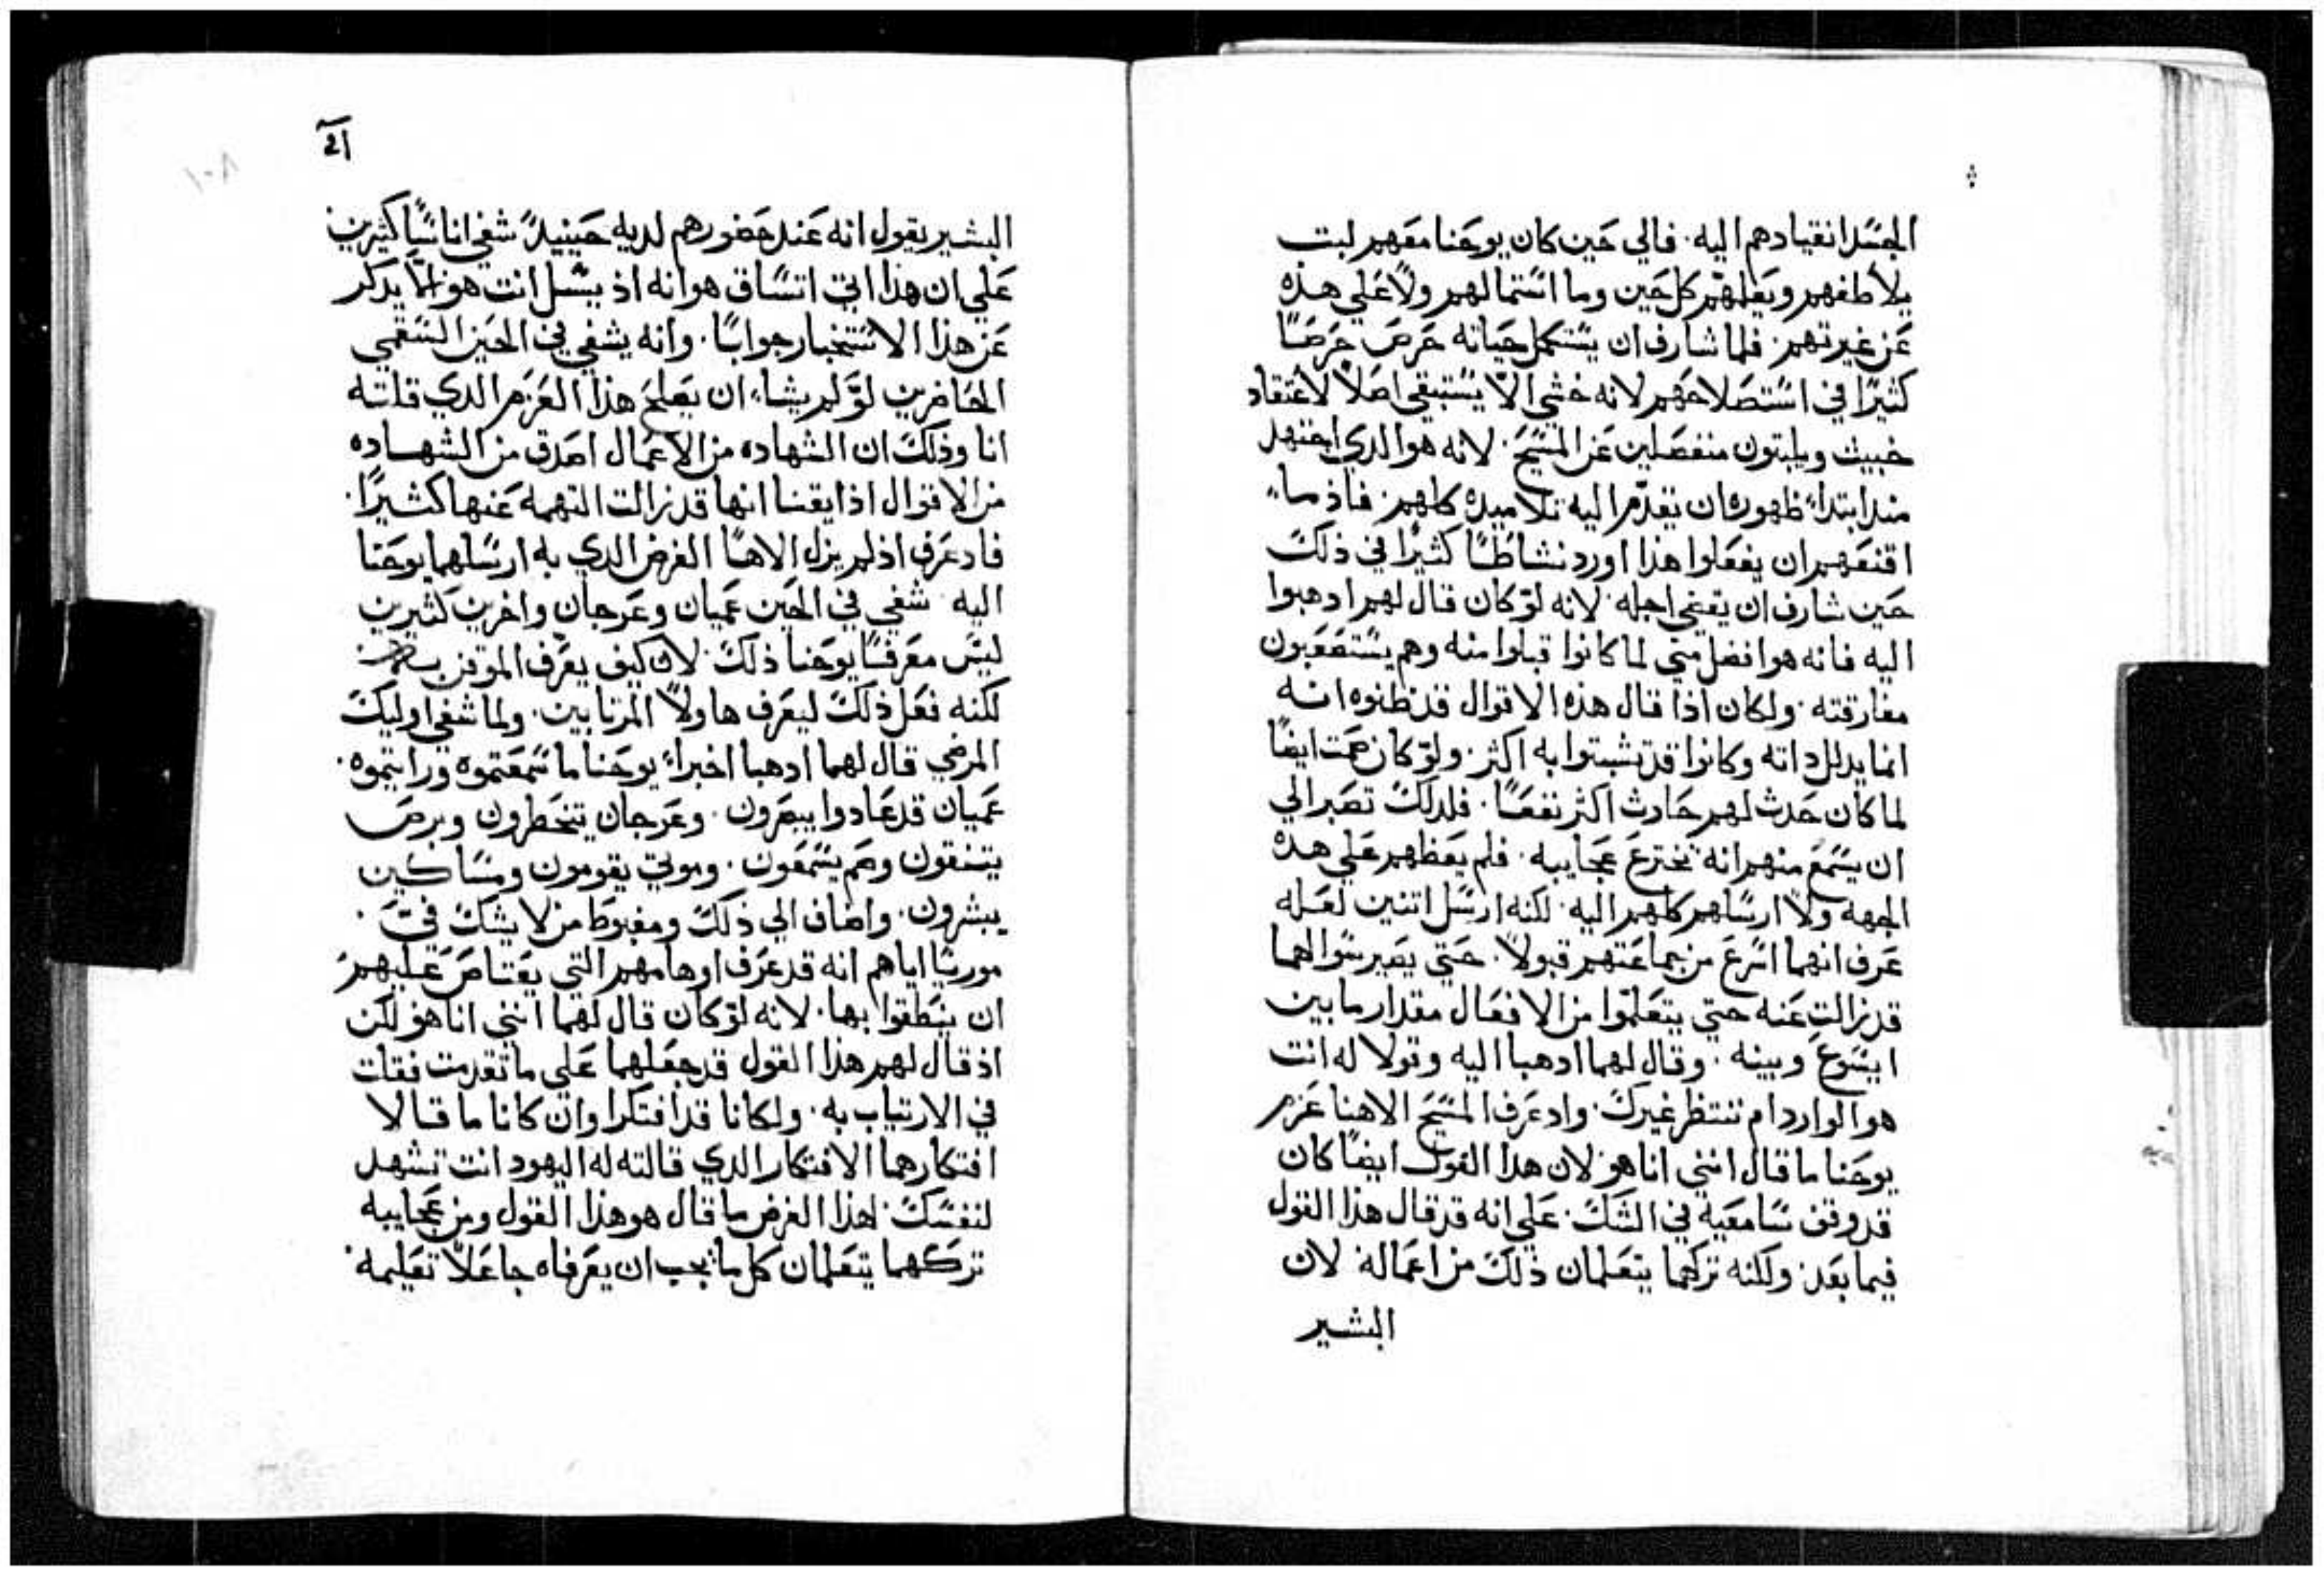 الجسد انقيادهم اليه. فالي حين كان يوحنا معهم لبت
يلاطفهم ويعلمهم كل حين وما استمالهم ولا علي هذه
عن غيرتهم. فلما شارف ان يستكمل حياته حرص حرصًا
كثيرًا في استصلاحهم لانه خشي الا يستبقي اصلًا لاعتقاد
خبيث ويلبتون منفصلين عن المسيح. لانه هو الدي اجتهد
مند ابتداء ظهوره ان يقدم اليه تلاميده كلهم. فاذ ما
اقنعهم ان يفعلوا هذا اورد نشاطًا كثيرًا في ذلك
حين شارف ان يقضي اجله. لانه لو كان قال لهم ادهبوا
اليه فانه هو افضل مني لما كانوا قبلوا منه وهم يستصعبون
مفارقته. ولكان اذا قال هذه الاقوال قد ظنوه انه
انما يدلل داته وكانوا قد تشبتوا به اكثر. ولو كان صمت ايضًا
لما كان حدث لهم حادث اكثر نفعًا. فلدلك تصبر الي
ان يسمع منهم انه يخترع عجايبه. فلم يعظهم علي هده
الجهه ولا ارسلهم كلهم اليه. لكنه ارسل اتنين لعله
عرف انهما اسرع من جماعتهم قبولًا. حتي يصير سوالهما
قد زالت عنه حتي يتعلموا من الافعال مقدار ما بين
ايسوع وبينه. وقال لهما ادهبا اليه وقولا له انت
هو الوارد ام ننتظر غيرك. واد عرف المسيح الاهنا عزم
يوحنا ما قال انني انا هو. لان هدا القول ايضًا كان
قد وقف سامعيه في الشك. علي انه قد قال هذا القول
فيما بعد. ولكنه تركهما يتعلمان ذلك من اعماله. لان
البشير
البشير يقول انه عند حضورهم لديه حينيدً شفي اناسًا كثيرين
علي ان هذا اي اتساق هو انه اذ يسل انت هو لا يدكر
عن هذا الاستخبار جوابًا. وانه يشفي في الحين السقمي
الحاضرين لو لم يشاء ان يصلح هذا العزم الدي قلته
انا وذلك ان الشهاده من الاعمال اصدق من الشهاده
من الاقوال اذا يقسا انها قد زالت التهمه عنها كثيرًا.
فاد عرف اذ لم يزل الاهًا الغرض الدي به ارسلهما يوحنا
اليه. شفي في الحين عميان وعرجان واخرين كثيرين
ليس معرفًا يوحنا ذلك. لان كيف يعرف الموقن
لكنه فعل ذلك ليعرف هاولا المرتابين. ولما شفي اوليك
المرضي قال لهما ادهبا اخبراء يوحنا ما سمعتموه ورايتموه.
عميان قد عادوا يبصرون. وعرجان يتخطرون وبرص
يتنقون وصم يسمعون. وموتي يقومون ومساكين
يبشرون. واضاف الي ذلك ومغبوط من لا يشك في.
موريًا اياهم انه قد عرف اوهامهم التي يعتاص عليهم
ان ينطقوا بها. لانه لو كان قال لهما انني انا هو لكن
اذ قال لهم هذا القول قد جعلهما علي ما تقدمت فقلت
في الارتياب به. ولكانا قد افتكرا وان كانا ما قالا
افتكارهما الافتكار الدي قالته له اليهود انت تشهد
لنفسك. لهذا الغرض ما قال هو هذا القول ومن عجايبه
تركهما يتعلمان كل ما يجب ان يعرفاه جاعلًا تعليمه.